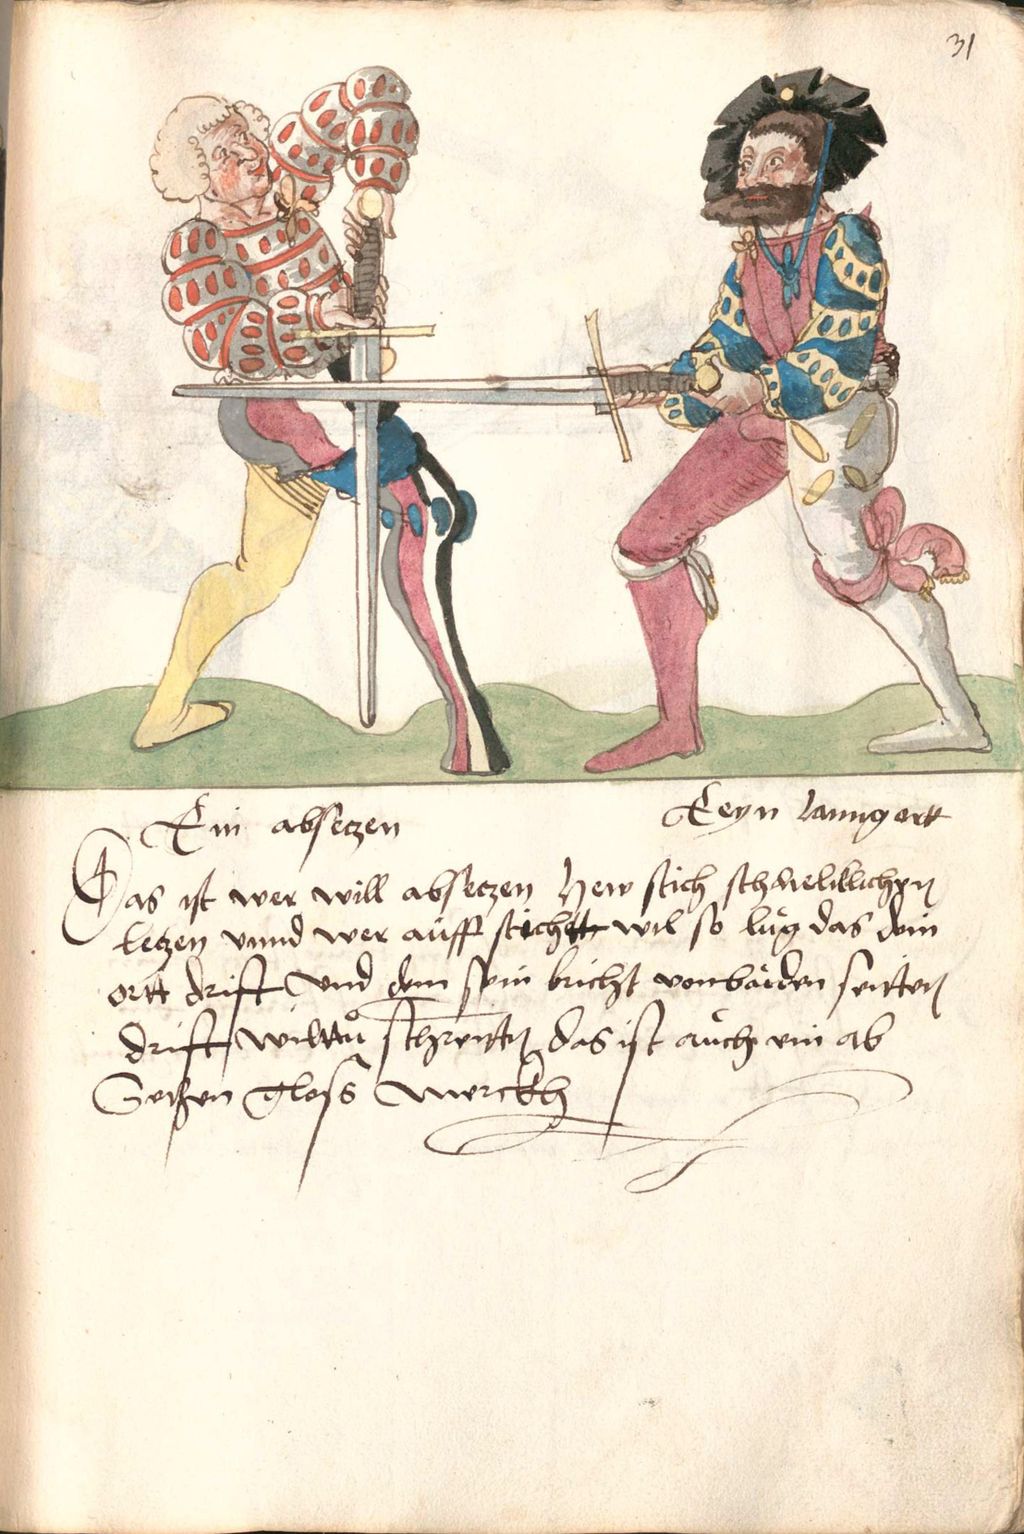 31
Ein absetzen
Eeyn lanngortt
Das ist wer will absetzen Hew stich schnelillichen
letzen vnnd wer aůff stichett wil so lůg das dein
ortt drift vnd dem sein bricht von baiden seitten
drift wilttů schreitten das ist aůch ein ab
Setzen gloss Merckh